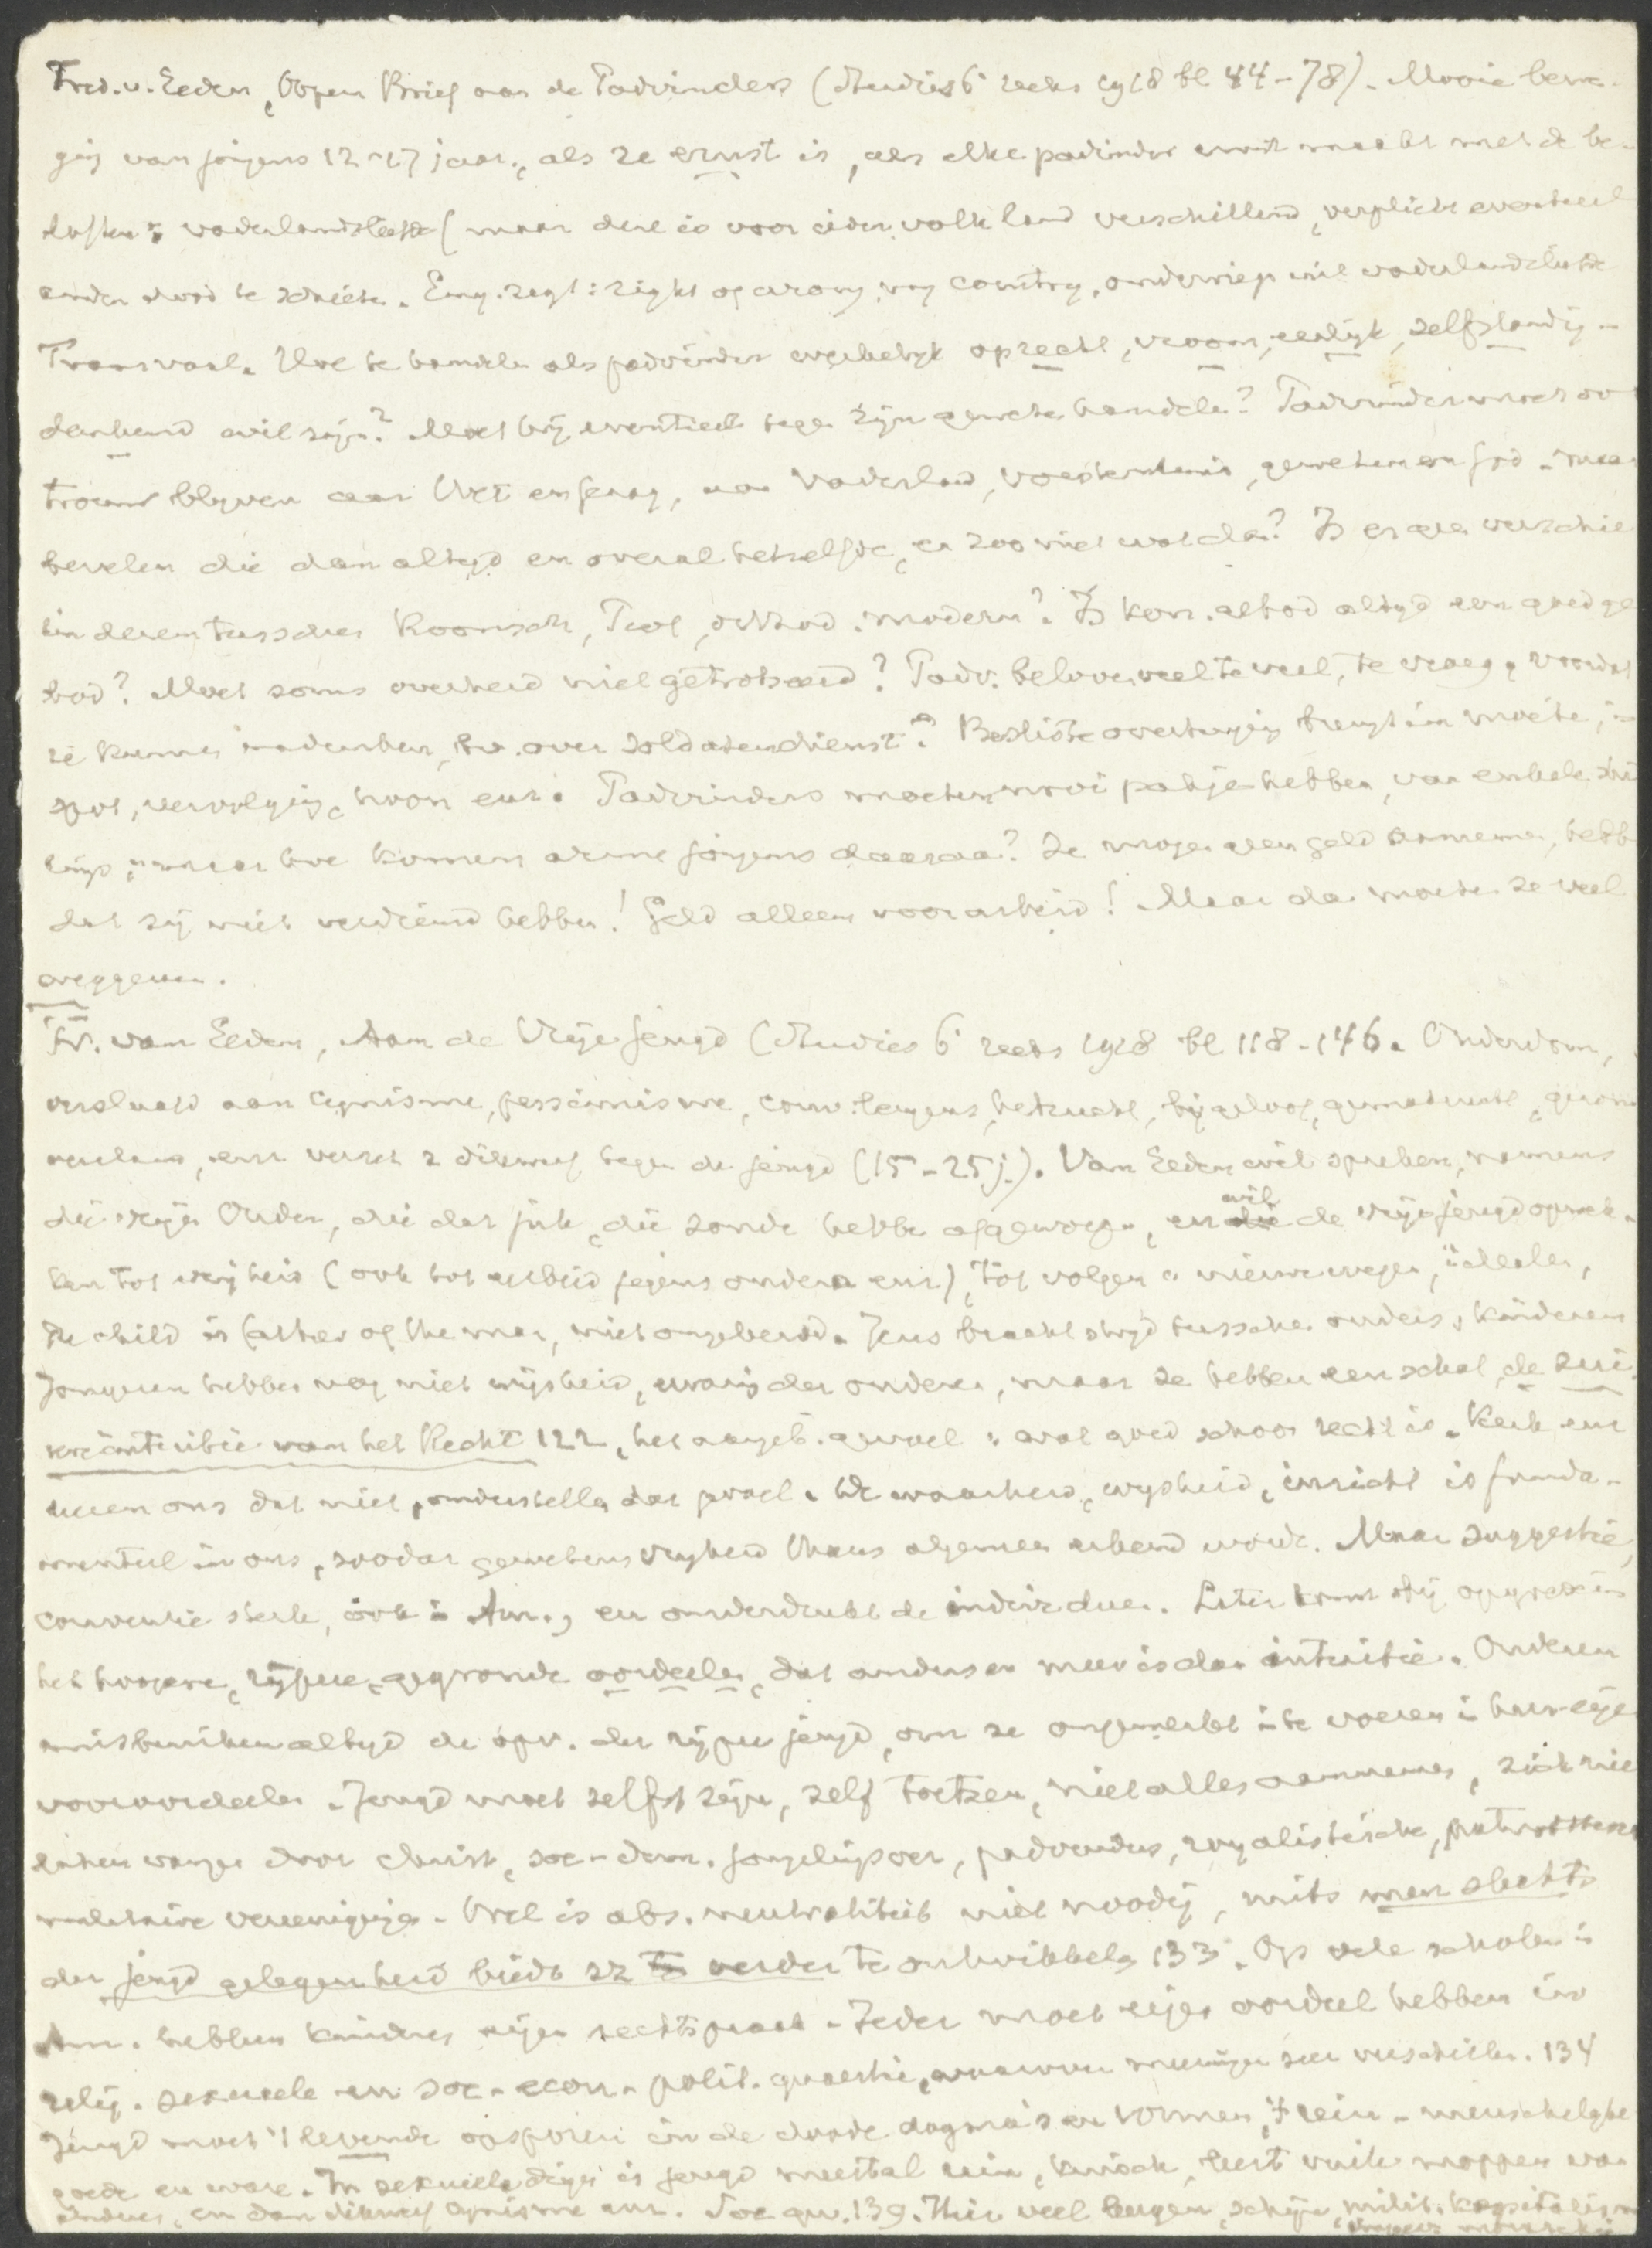 Fred. v. Eeden, Open Brief aan de Padvinders (Studies 6e reeks 1918 bl 44-78). Mooie bewe-
ging van jongens 12-17 jaar, als ze ernst is, als elke padvinder ernst maakt met de be-
loften v. vaderlandsliefde (maar deze is voor ieder volk land verschillend, verplicht eventueel
ander dood te schieten. Eng. zegt: right or wrong, my country, onderwierp uit vaderlandsliefde
Transvaal. Hoe te handelen als padvinder werkelijk oprecht, vroom, eerlijk, zelfstandig
denkend wil zijn? Moet hij eventueel tegen zijn geweten handelen? Padvinder moet ook
trouw blijven aan Wet en gezag, aan Vaderland, Vorstenhuis, geweten en God. Maar
bevelen die dan altijd en overal hetzelfde, en zoo niet wat dan? Is er geen verschil
in deze tusschen Roomsch, Prot, orthod. modern? Is kon. gebod altijd een goed ge-
bod? Moet soms overheid niet getrotseerd? Padv. beloven veel te veel, te vroeg, voordat
ze kunnen nadenken, bv. over soldatendienst? Besliste overtuiging brengt in moeite, in
spot, vervolging, hoon enz. Padvinders moeten mooi pakje hebben, van enkele
maar hoe komen arme jongens daaraan? Ze mogen geen geld aannemen, hebben
dat zij niet verdiend hebben! Geld alleen voor arbeid! Maar dan moeten ze veel
weggeven.
Fr. van Eeden, Aan de Vrije Jeugd (Studies 6e reeks 1918 bl 118-146. Ouderdom,
verslaafd aan cynisme, pessimisme, conv. leugens, bijgeloof, gemakzucht,
enz verzet z dikwerf tegen de jeugd (15-25 j.). Van Eeden wil spreken, namens
die vrije Ouden, die dat juk, die zonde hebben afgeworpen, en wil de vrije jeugd opwek-
ken tot vrijheid (ook tot arbeid jegens ouderen enz), tot volgen v nieuwe wegen, idealen,
the child is father of the man, niet omgekeerd. Jezus bracht strijd tusschen ouders, kinderen
Jongeren hebben nog niet wijsheid, ervaring der ouderen, maar ze hebben een schat, de zui-
vere intuitie van het Recht 122, het aangeb. gevoel v wat goed schoon recht is. Kerk enz
leeren ons dat niet, onderstellen dat gevoel. De waarheid, wijsheid, inzicht is funda-
menteel in ons, zoodat gewetensvrijheid thans algemeen erkend wordt. Maar suggestie,
conventie sterk, ook in Am., en onderdrukt de individuen. Later komt
het hoogere, rijpere, gegronde oordeelen, dat anders en meer is dan intuitie. Ouderen
misbruiken altijd de opv. der rijpere jeugd, om ze ongemerkt in te voeren in hun eigen
vooroordeelen. Jeugd moet zelfst zijn, zelf toetsen, niet alles aannemen, zich niet
laten vangen door christ., soc-dem. jongelingsver, padvinders, royalistische,
militaire vereenigingen. Wel is abs. neutraliteit niet noodig, mits men slechts
der jeugd gelegenheid biedt zz verder te ontwikkelen 133. Op vele scholen in
Am. hebben kinderen eigen rechtspraak. Ieder moet eigen oordeel hebben in
relig. sexueele en soc-econ-polit. quaestie, waarover meeningen zeer verschillen. 134
Jeugd moet 't levende opsporen in de doode dogma's en vormen, 't rein-menschelijke
goede en ware. In sexueele dingen is jeugd meestal rein, kuisch, leert vuile moppen van
anderen, en dan dikwerf cynisme enz. Soc qu. 139. Hier veel leugen, schijn, milit. kapitalisme